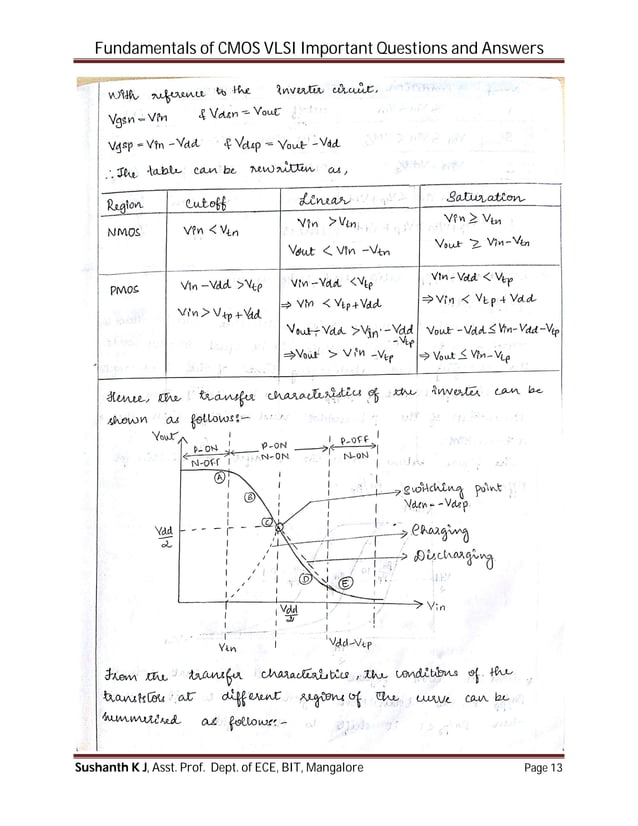 Fundamentals of CMOS VLSI Important Questions and Answers
With reference to the inverter circuit.
Vgsn = Vin & Vdsn = Vout
Vgsp = Vin - Vdd & Vdsp = Vout - Vdd
∴ The table can be rewritten as,
Region Cutoff Linear Saturation
NMOS Vin < Vtn Vin > Vtn Vin ≥ Vtn
Vout < Vin - Vtn Vout ≥ Vin - Vtn
PMOS Vin - Vdd > Vtp Vin - Vdd < Vtp Vin - Vdd < Vtp
Vin > Vtp + Vdd ⇒ Vin < Vtp + Vdd ⇒ Vin < Vtp + Vdd
Vout - Vdd > Vin - Vdd - Vtp Vout - Vdd ≤ Vin - Vdd - Vtp
⇒ Vout > Vin - Vtp ⇒ Vout ≤ Vin - Vtp
Hence, the transfer characteristics of the inverter can be
shown as follows:-
Vout
P-ON P-ON P-OFF
N-OFF N-ON N-ON
A
B
Switching point
Vdsn = - Vdsp
C
Vdd/2
Charging
Discharging
D E
Vin
Vdd/2
Vtn Vdd-Vtp
From the transfer characteristics, the conditions of the
transistor at different regions of the curve can be
summerised as follows:-
Sushanth K J, Asst. Prof. Dept. of ECE, BIT, Mangalore Page 13